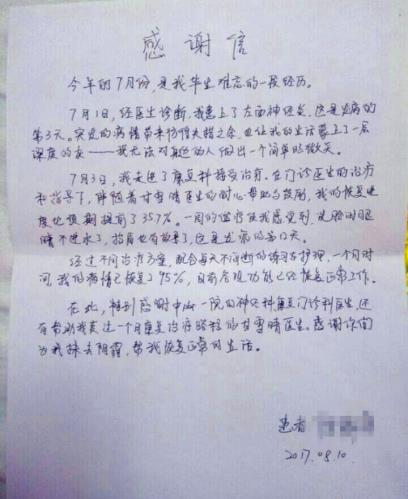 感谢信
今年的7月份,是我毕生难忘的一段经历。
7月1日,经医生诊断,我患上了左面神经炎,这是发病的
第3天。突发的病情带来惊慌失措之余,也让我的生活蒙上了一层
深度的灰——我无法对身边的人做出一个简单的微笑。
7月3日,我来进了康复科接受治疗。在门诊医生的治疗
和指导下,伴随着甘雪晴医生的耐心帮助与鼓励,我的恢复进
度比预期提前了35%。一周的治疗让我感受到,洗脸时眼
睛不进水了,抬眉也有改善了,这是发病的第10天。
经过不同治疗方案,配合每天不间断的练习与护理,一个月时
间,我的病情已恢复了95%,目前各项功能已经恢复正常工作。
在此,特别感谢中山一院的神经科康复门诊科医生,还
有帮助我度过一个月康复治疗路程的甘雪晴医生。感谢你们
为我抹去阴霾,带我恢复正常的生活。
患者
2017.08.10.